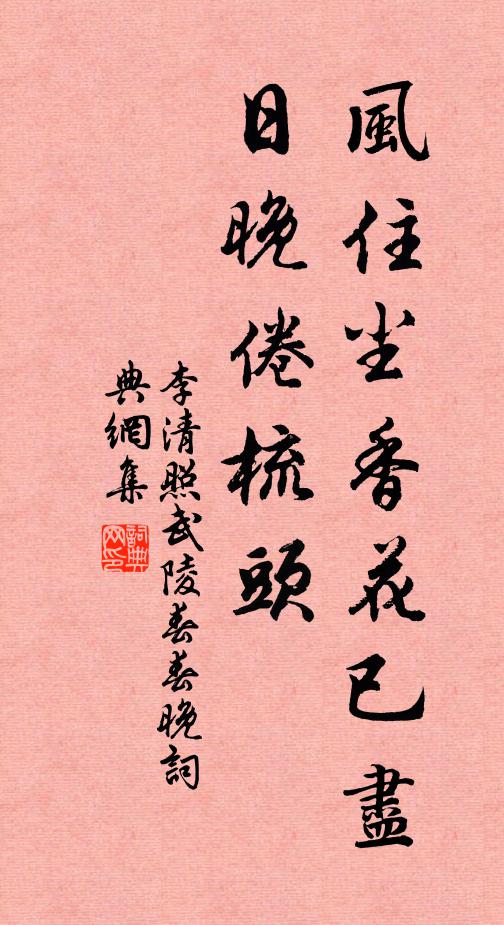 風住尘香花已盡
日晚倦梳頭
李清照武陵春春晚詞
典網集
詞典网印